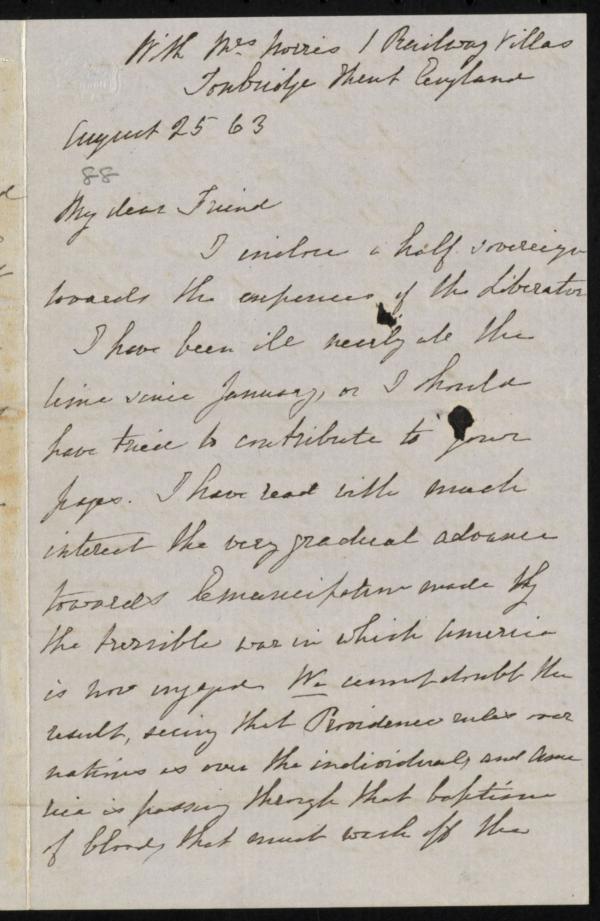 With Mrs Norris 1 Railway Villas
Tonbridge Kent England
August 25 63
88
My dear Friend
I inclose a half sovereign
towards the expences of the Liberator
I have been ill nearly all the
time since January, or I should
have tried to contribute to your
pages. I have read with much
interest the very gradual advance
towards Emancipation made by
the terrible war in which America
is now engaged. We cannot doubt the
result, seeing that Providence rules over
nations as over the individual, and Ame
rica is passing through that baptism
of blood, that must wash off the